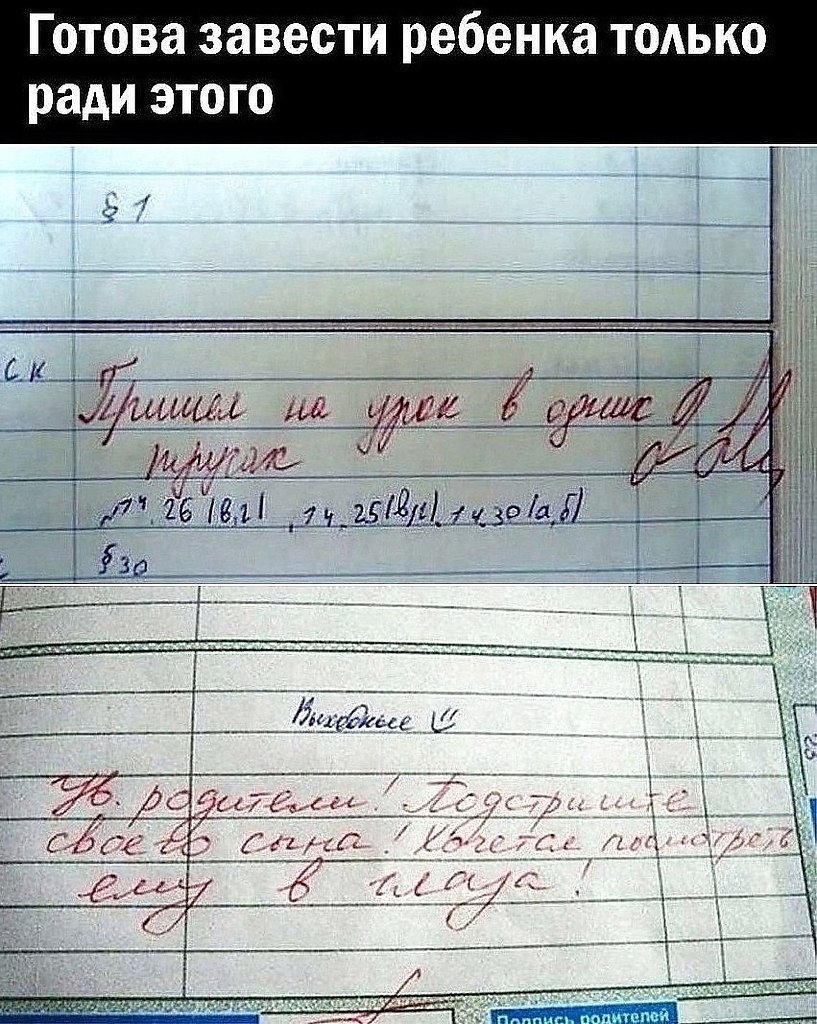 Готова завести ребенка только
ради этого
§ 1
ск
Пришел на урок в одних
трусах
14.26 (в,г), 14.25(в,г), 14.30(а,б)
§ 30
Выходные
Ув. родители! Подстригите
своего сына! Хочется посмотреть
ему в глаза!
23
Подпись родителей